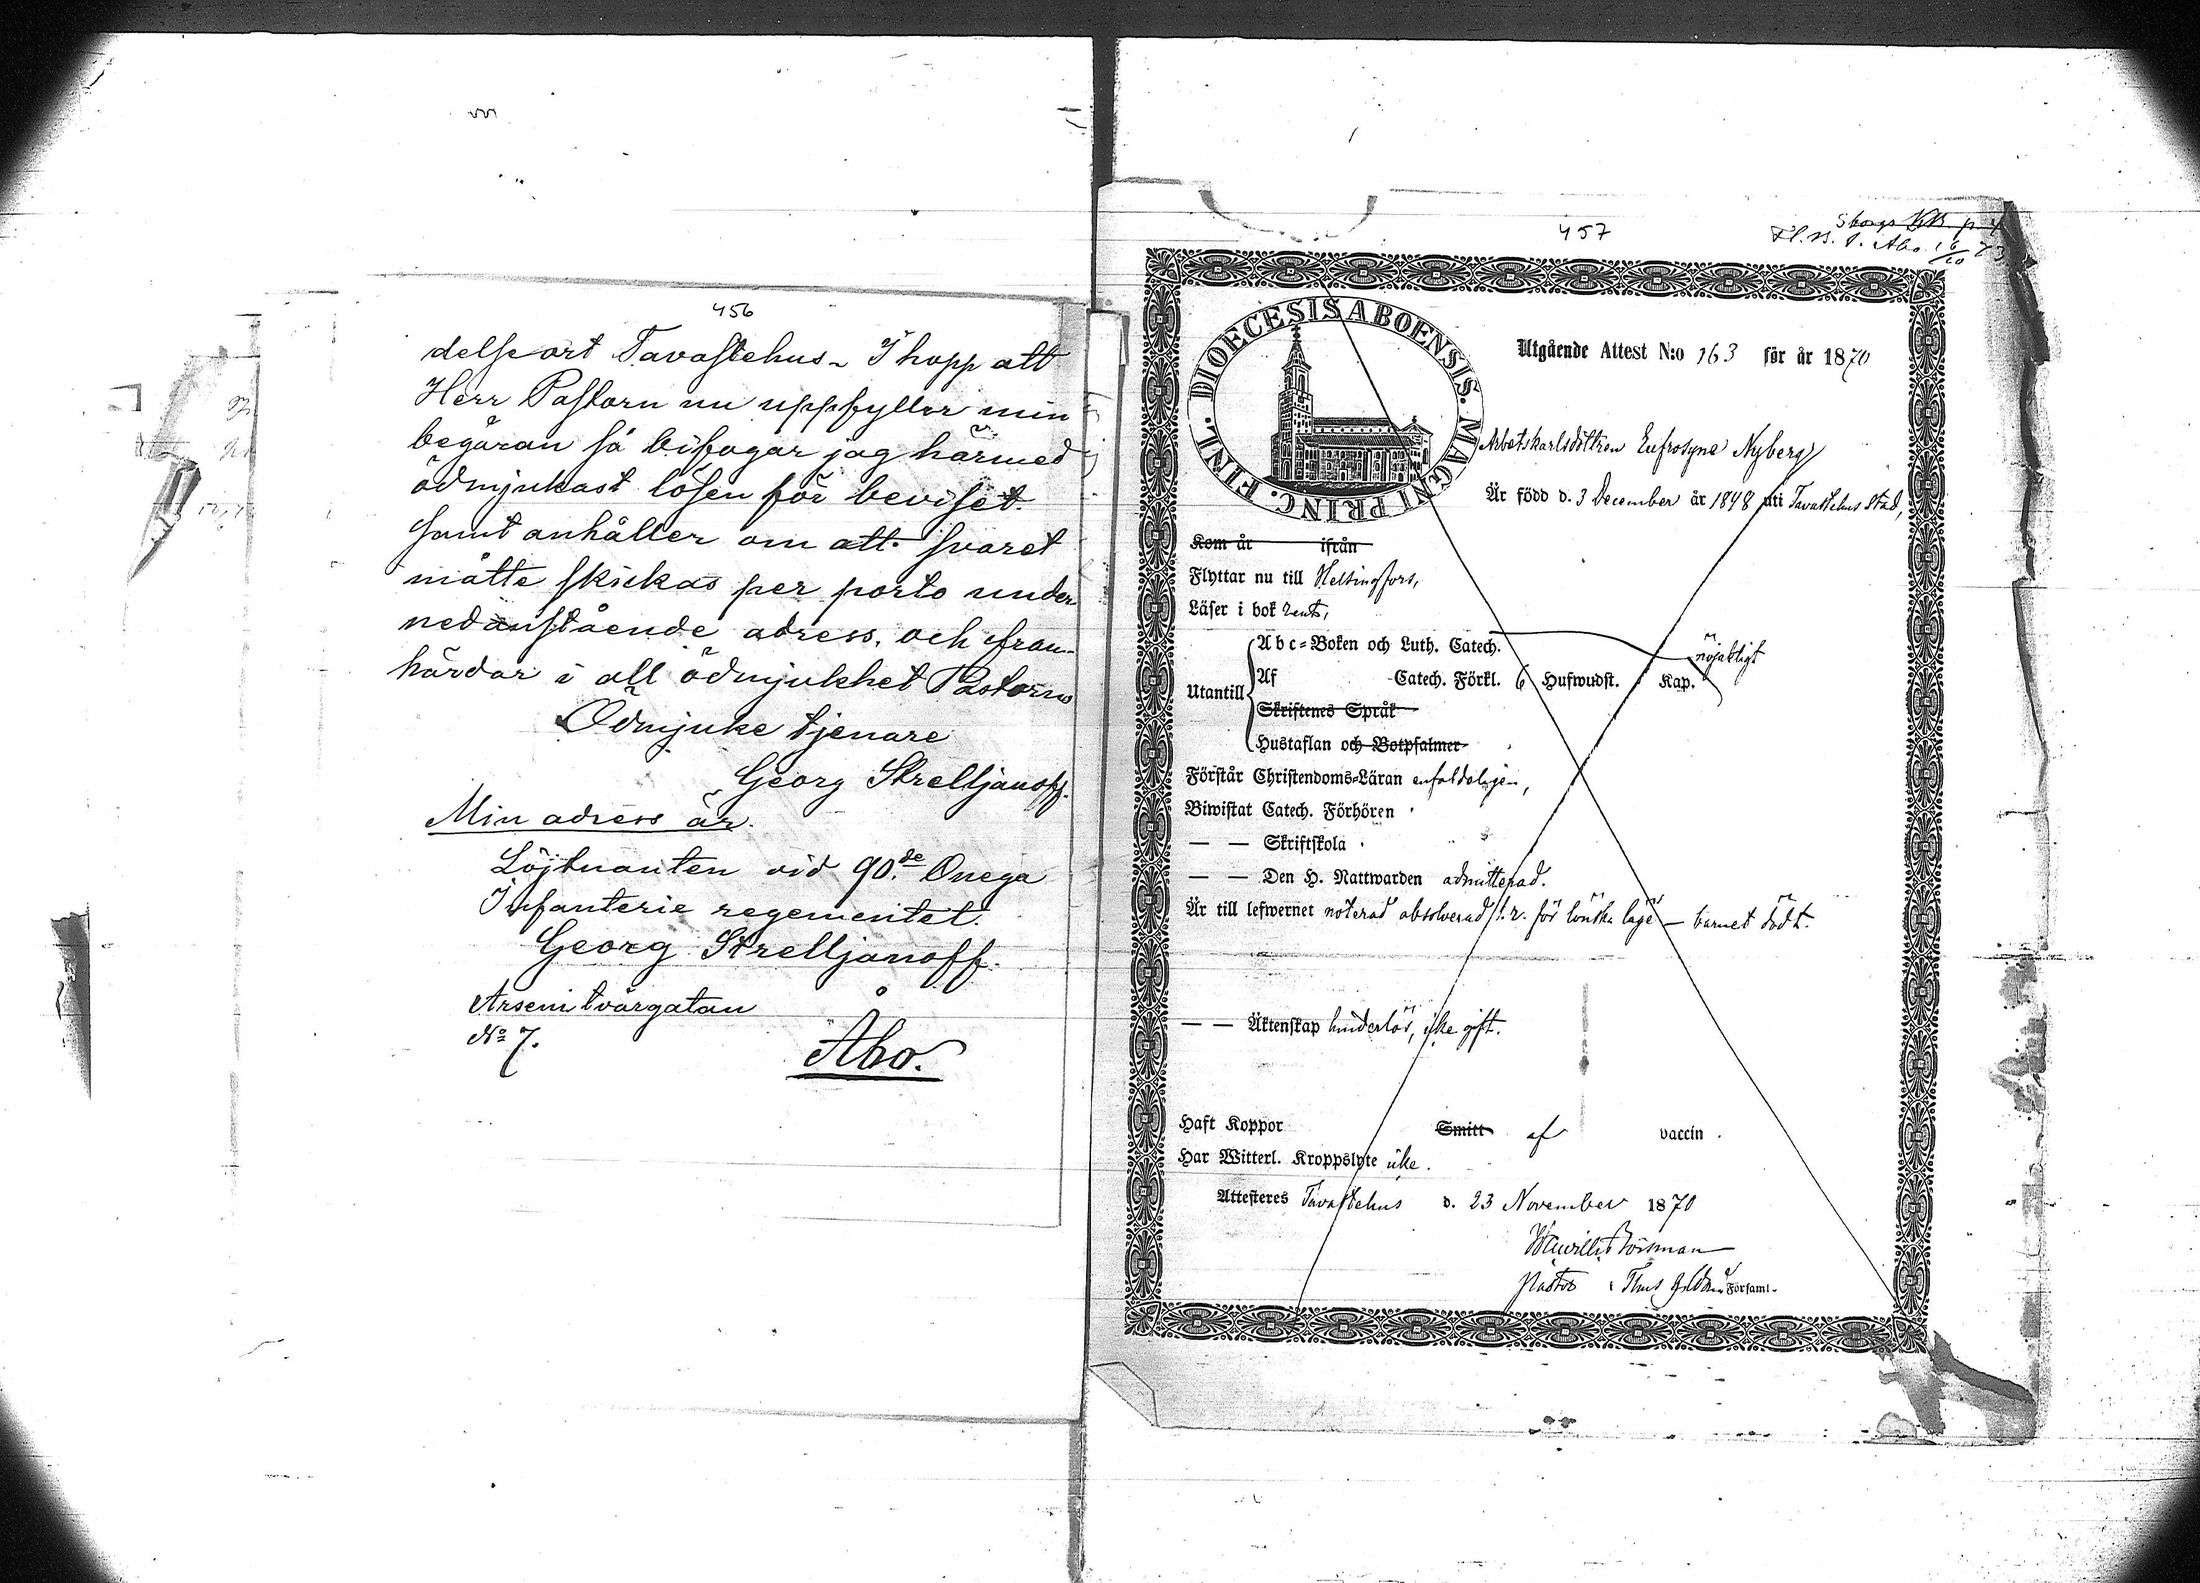 456
delseort Tavastehus. I hopp att
Herr Pastorn nu uppfyller min
begäran så bifogar jag härmed
ödmjukast lösen för beviset.
samt anhåller om att svaret
måtte skickas per porto under
nedanstående adress, och fram-
härdar i all ödmjukhet Pastorns
Ödmjuke tjenare
Georg Strelljanoff.
Min adress är.
Löjtnanten vid 90:de Onega
Infanterie regementet.
Georg Strelljanoff.
Arseni tvärgatan
No 7.
Åbo.
457
DIOECESIS ABOENSIS. MAGNI PRINC. FINL.
Utgående Attest N:o 163 för år 1870
Arbetskarlsdottren Eufrosyne Nyberg
Är född d. 3 December år 1848 uti Tavastehus Stad,
Kom år ifrån
Flyttar nu till Helsingfors,
Läser i bok rent,
Abc-Boken och Luth. Catech.
nöjaktigt
Utantill
Af Catech. Förkl. 6 Hufwudst. Kap.
Skriftenes Språk
Hustaflan och Botpsalmer
Förstår Christendoms-Läran enfaldeligen,
Biwistat Catech. Förhören
— — Skriftskola
— — Den H. Nattwarden admitterad.
Är till lefwernet noterad absolverad för lönska läge — barnet dödt.
— — Äktenskap hinderlös, icke gift.
Haft Koppor Smitt af vaccin.
Har Witterl. Kroppslyte icke.
Attesteres Tavastehus d. 23 November 1870
Pastor Församl.